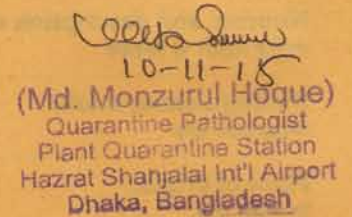 10-11-15
(Md. Monzurul Hoque)
Quarantine Pathologist
Plant Quarantine Station
Hazrat Shahjalal Int'l Airport
Dhaka, Bangladesh